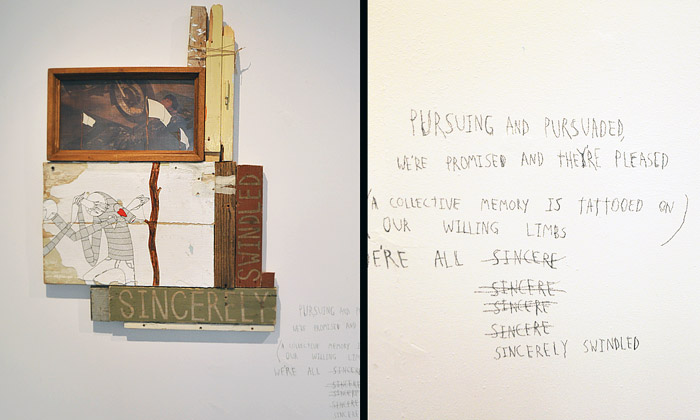 SWINDLED
SINCERLLY
PURSUING AND
WE'RE PROMISED AND
(A COLLECTIVE MEMORY
OUR WILLING
WE'RE ALL SINCERE
SINCERE
SINCERE
SINCERE
PURSUING AND PURSUADED,
WE'RE PROMISED AND THEY'RE PLEASED
(A COLLECTIVE MEMORY IS TATTOOED ON
OUR WILLING LIMBS)
E'RE ALL SINCERE
SINCERE
SINCERE
SINCERE
SINCERELY SWINDLED